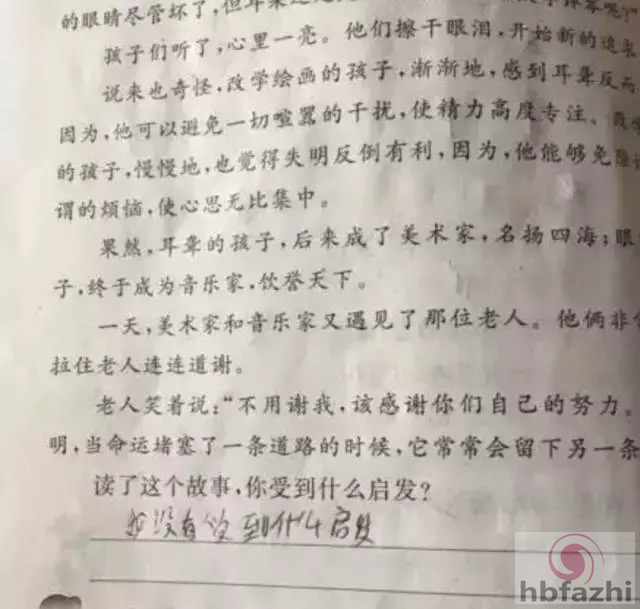 的眼睛尽管坏了,但耳朵
孩子们听了,心里一亮。他们擦干眼泪,开始新的追求
说来也奇怪,改学绘画的孩子,渐渐地,感到耳聋反而
因为,他可以避免一切喧嚣的干扰,使精力高度专注。
的孩子,慢慢地,也觉得失明反倒有利,因为,他能够免除
谓的烦恼,使心思无比集中。
果然,耳聋的孩子,后来成了美术家,名扬四海;眼
子,终于成为音乐家,饮誉天下。
一天,美术家和音乐家又遇见了那位老人。他俩非
拉住老人连连道谢。
老人笑着说:“不用谢我,该感谢你们自己的努力。
明,当命运堵塞了一条道路的时候,它常常会留下另一条
读了这个故事,你受到什么启发?
我没有受到什么启发
hbfazhi